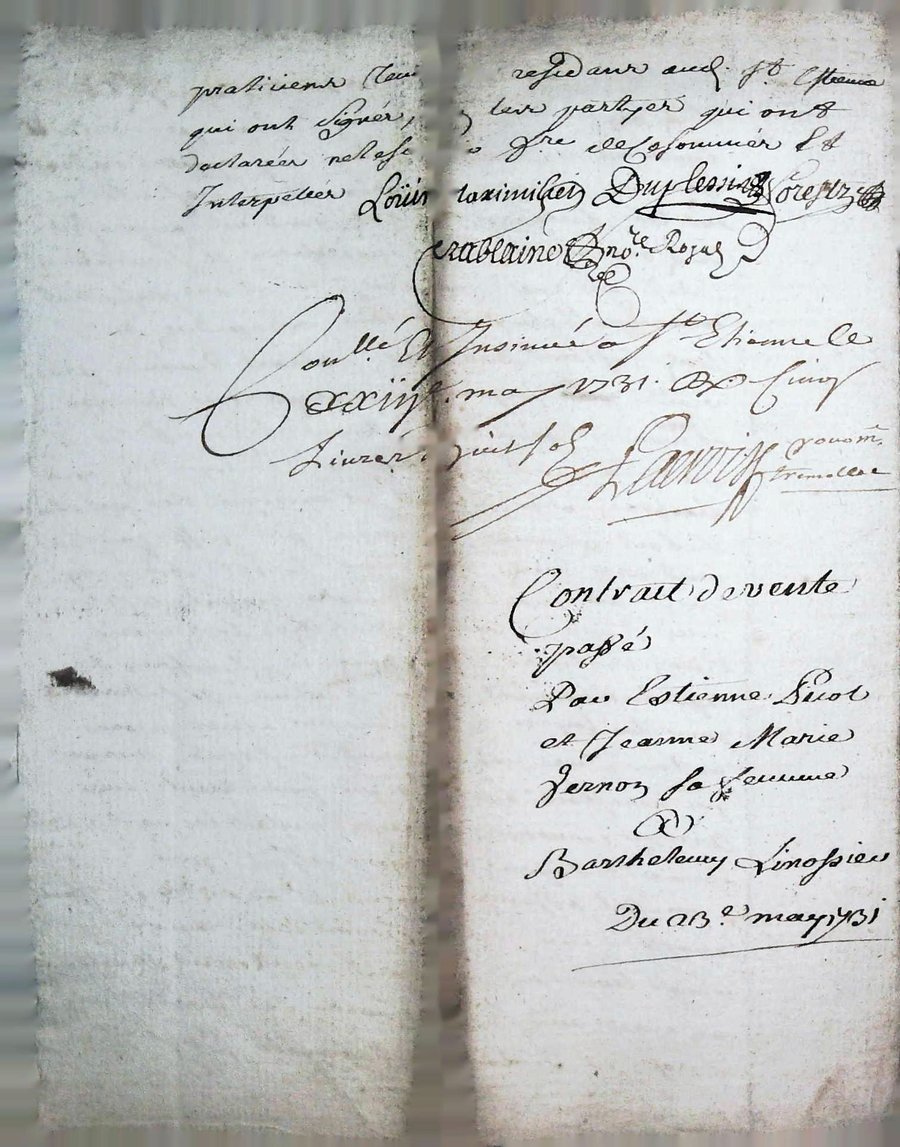 praticiens residans aud. st Estienne
qui ont signés, les partyes qui ont
declarées de ce sommées Et
Interpellés Loüis maximilien Duplessis
Crablaine no.re Royal
Conllé Et Insinué a St Etienne le
xxiije. may 1731. Cinq
Livres huit sols
Contrait de vente
passé
Par Estienne Picot
et Jeanne Marie
Vernon sa femme
Barthelemy Linossier
Du 23e may 1731